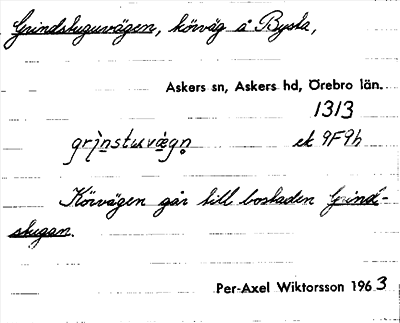 Grindstuguvägen, körväg å Bysta,
Askers sn, Askers hd, Örebro län.
1313
ek 9F9h
Körvägen går till bostaden Grind-
stugan.
Per-Axel Wiktorsson 1963